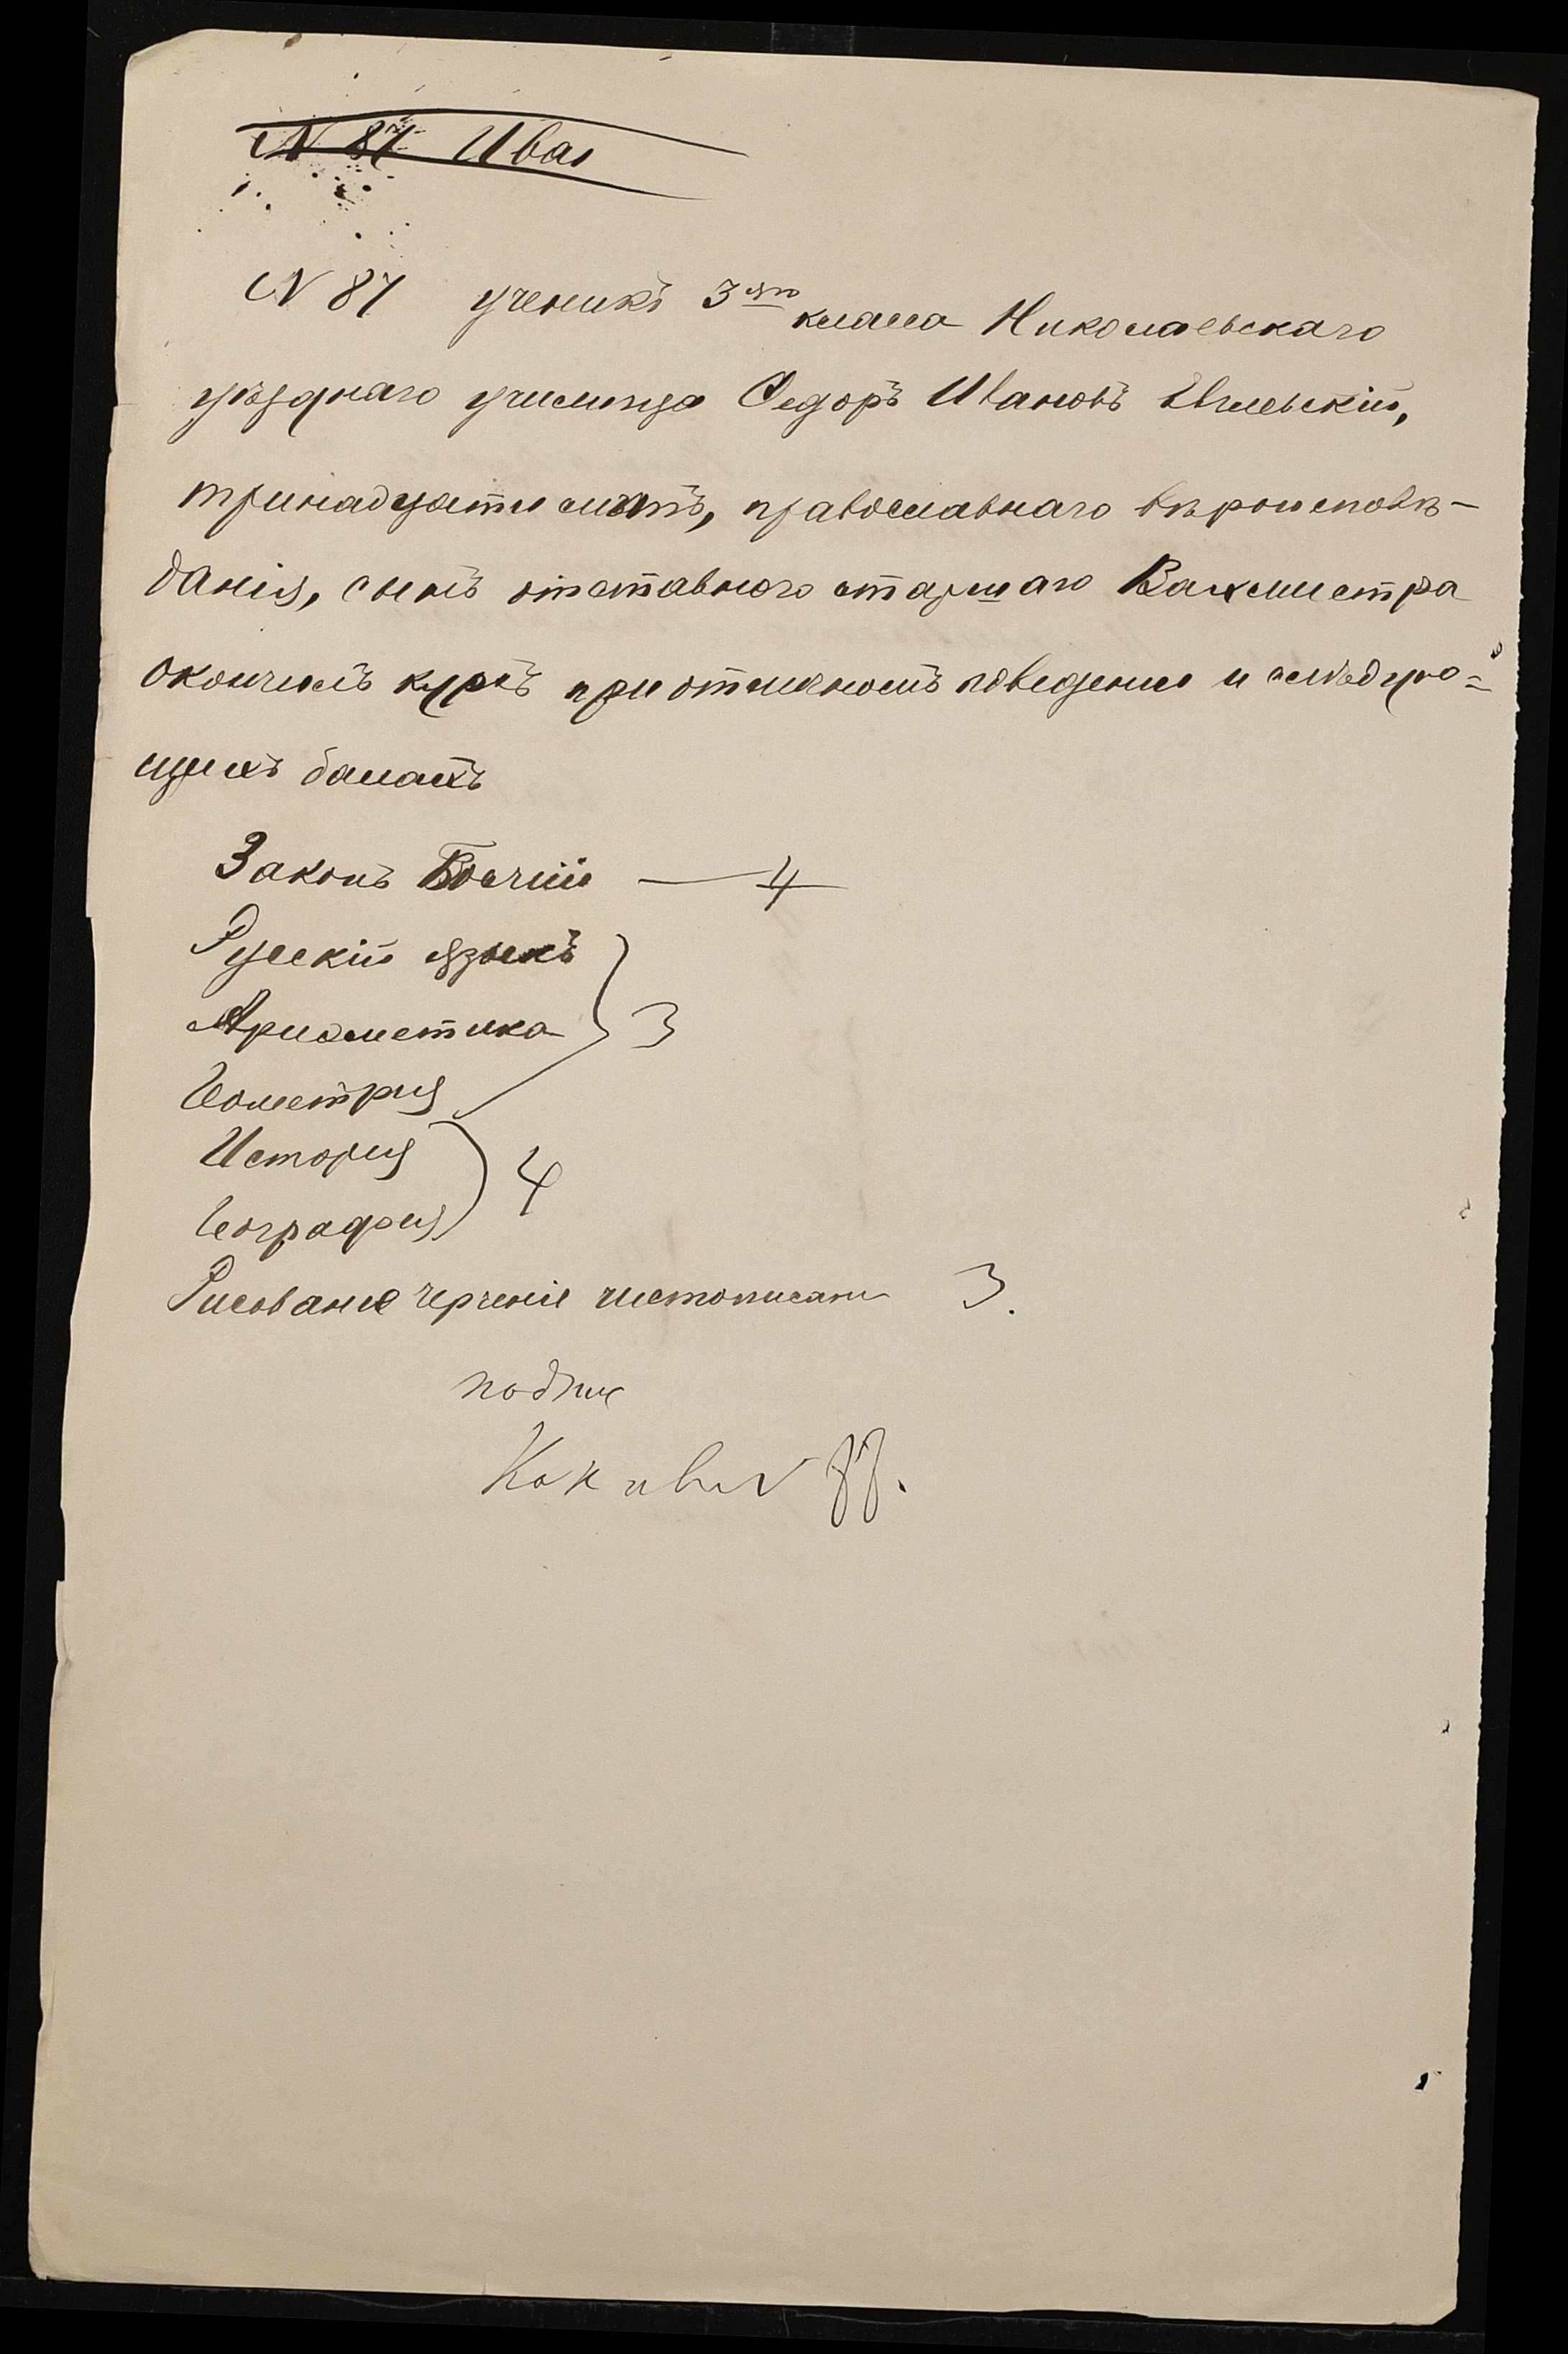 N 87 Ива
N 87 ученикъ 3го класса Николаевскаго
уѣзднаго училища Федоръ Ивановъ
тринадцати лѣтъ, православнаго вѣроисповѣ-
данія, сынъ отставного старшаго Вахмистра
окончилъ курсъ при отличномъ поведении и слѣдую=
щихъ балахъ
Законъ Божій — 4
Русскій языкъ
Ариѳметика 3
Геометрия
История 4
География
Рисование черченіе чистописани 3.
подпис